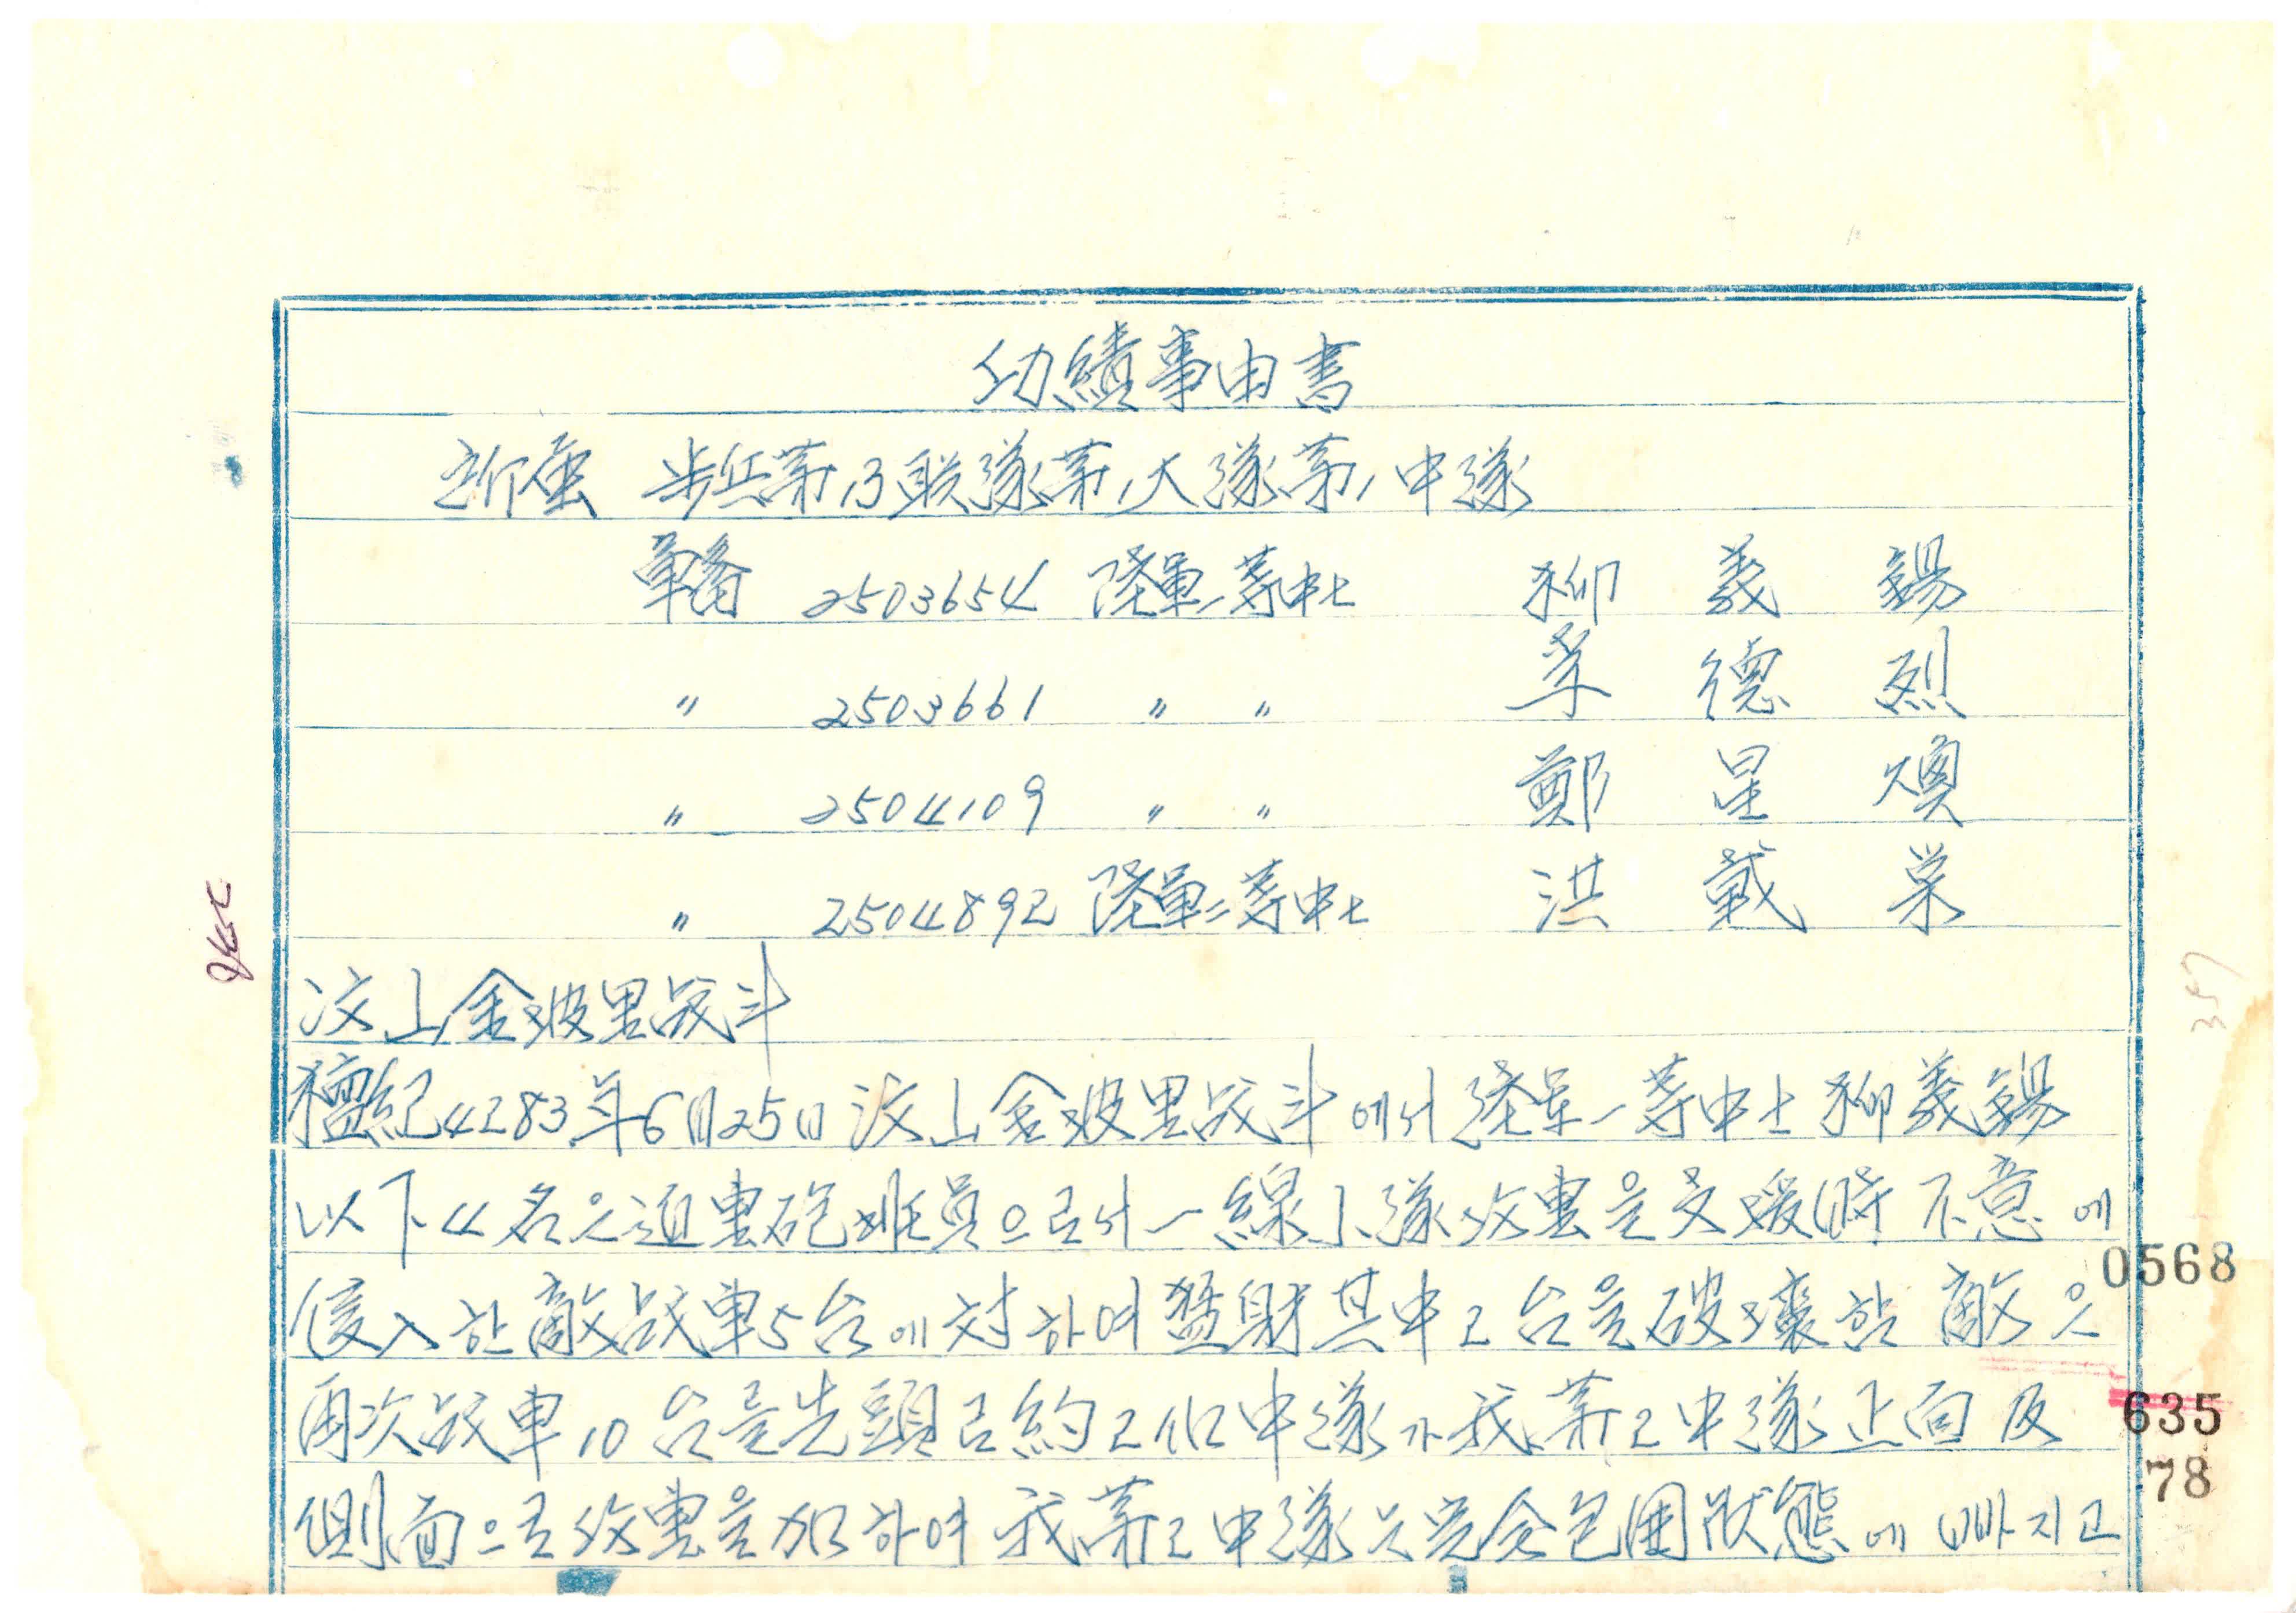 功績事由書
所屬 步兵第13联隊第1大隊第1中隊
軍番 2503654 陸軍一等中士 柳義錫
〃 2503661 〃 〃 李德烈
〃 2504109 〃 〃 鄭星煥
〃 2504892 陸軍二等中士 洪戴
汶山金坡里战斗
檀紀4283年6月25日 汶山金坡里战斗에서 陸軍一等中士 柳義錫
以下 4名은 迫擊砲班員으로서 一線小隊 攻擊을 支援時 不意에
侵入한 敵战車5台에 対하여 猛射 其中 2台을 破壞함 敵은
再次 战車 10台을 先頭로 約 2個中隊가 我 第2中隊 正面 及
側面으로 攻擊을 加하여 我 第2中隊은 完全包囲狀態에 빠지고
0568
635
78
357